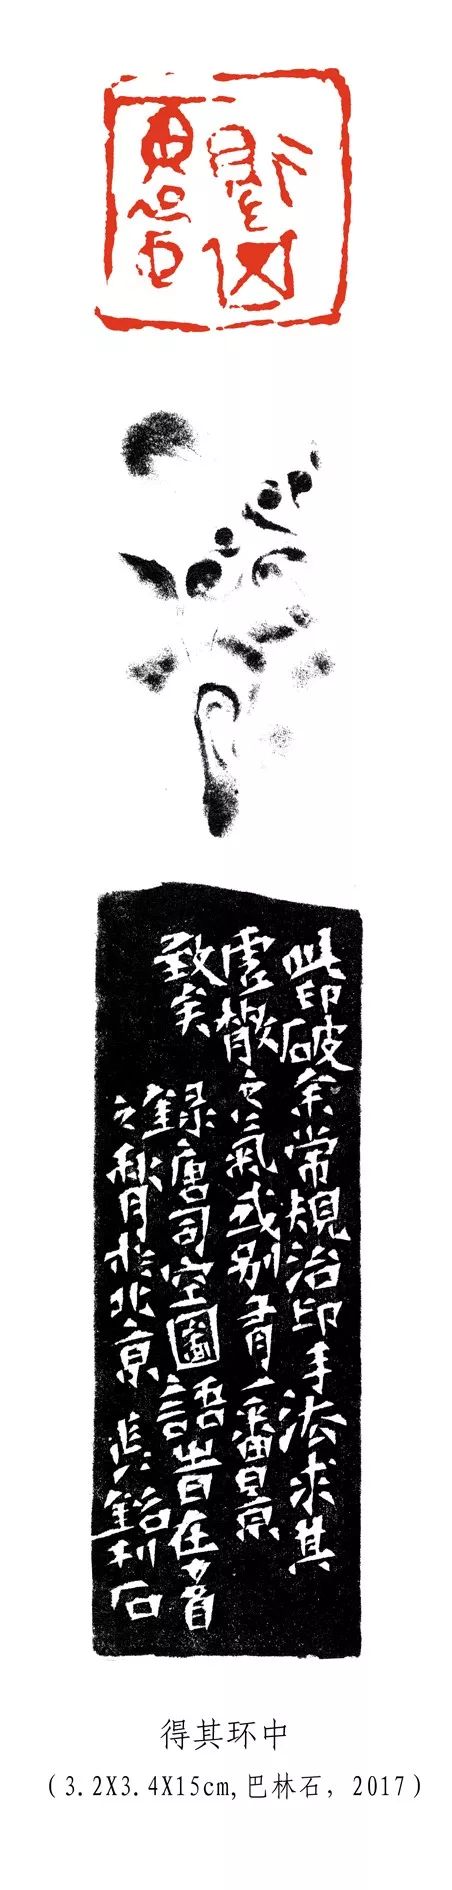 此印破余常規治印手法求其
虛散之氣或别有一番景
致矣
錄唐司空圖語旹在
之秋月於北京
石
得其环中
(3.2X3.4X15cm,巴林石，2017)